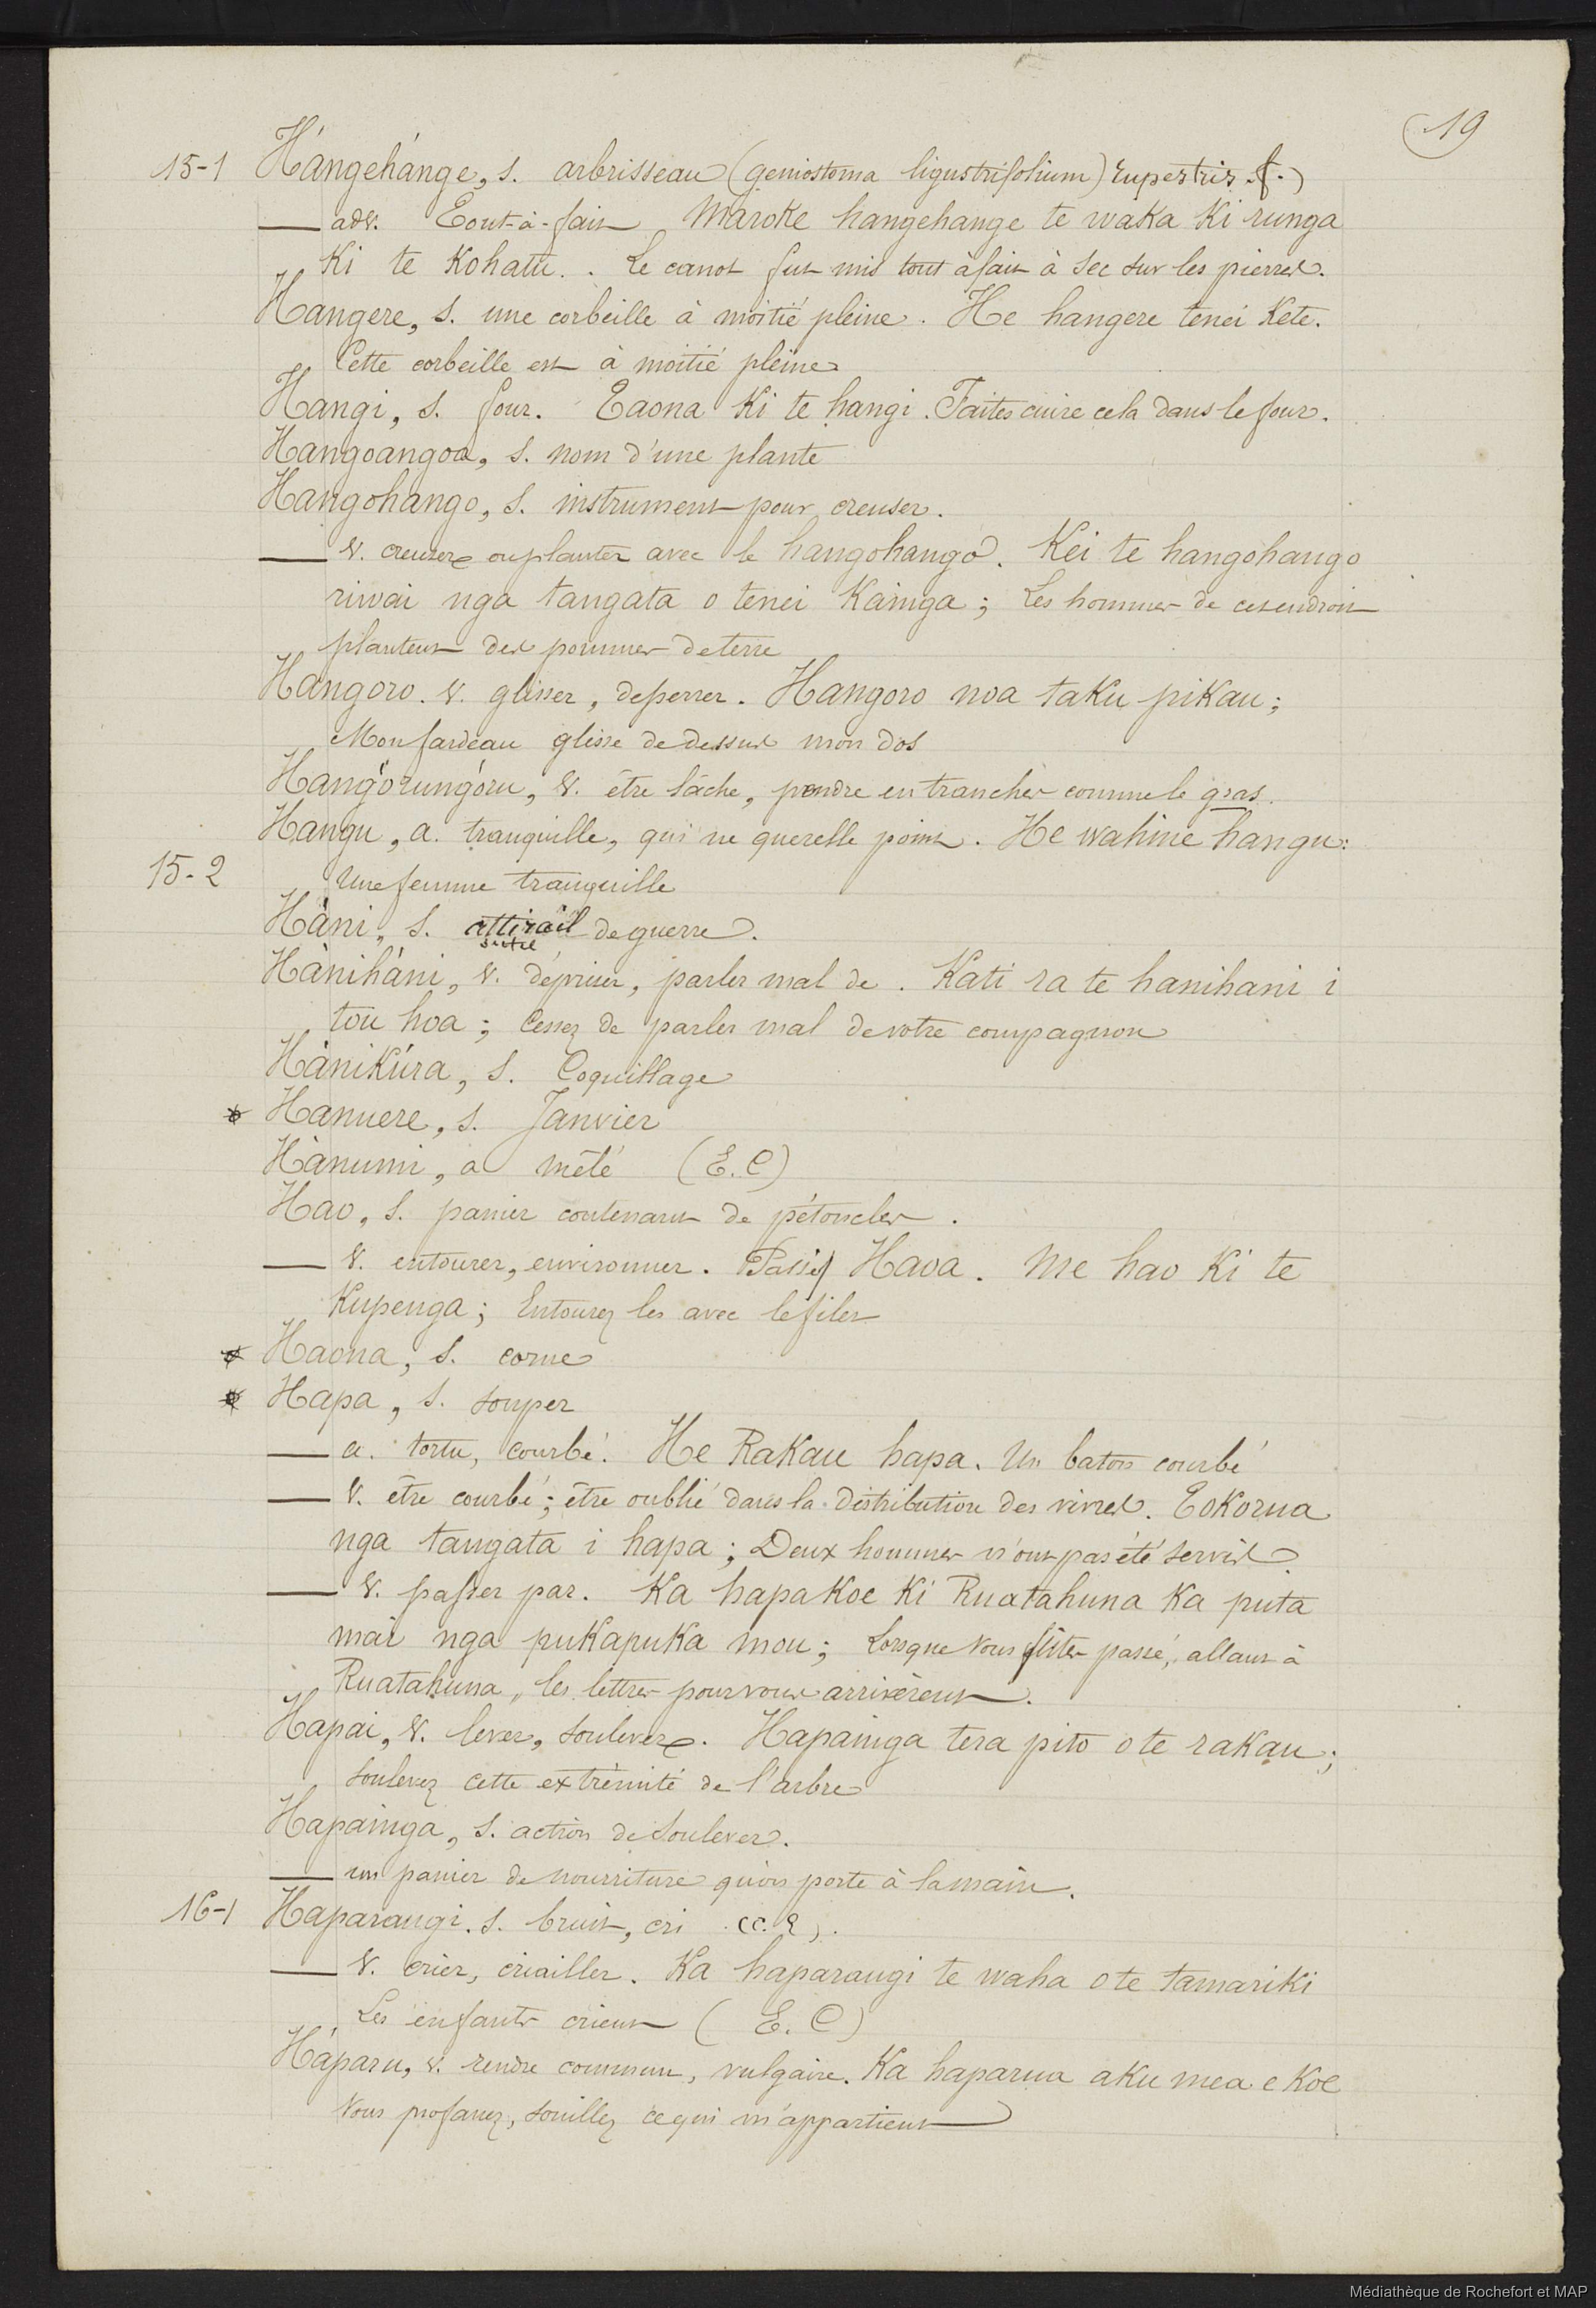 19
15-1 Hángehánge, s. arbrisseau (geniostoma ligustrifolium) rupestris f.)
— adv. Tout-à-fait Maroke hangehange te waka ki runga
ki te Kohatu. . Le canot fut mis tout à fait à sec sur les pierres.
Hangere, s. une corbeille à moitié pleine. He hangere tenei Kete.
Cette corbeille est à moitié pleine
Hangi, s. four. Taona ki te hangi. Faites cuire cela dans le four.
Hangoangoa, s. nom d'une plante
Hangohango, s. instrument pour creuser.
— v. creuser ou planter avec le hangohango. Kei te hangohango
riwai nga tangata o tenei Kainga; Les hommes de cet endroit
plantent des pommes de terre
Hangoro. v. glisser, desserrer. Hangoro noa taku pikau;
Mon fardeau glisse de dessus mon dos
Hangórungóru, v. être lâche, pendre en tranches comme le gras.
Hangu, a. tranquille, qui ne querelle point. He wahine hangu:
15-2 Une femme tranquille
Hàni, s. attirail de guerre.
Hànihàni, v. dépriser, parler mal de. Kati ra te hanihani i
tou hoa; Cessez de parler mal de votre compagnon
Hànikúra, s. Coquillage
* Hanuere, s. Janvier
Hànumi, a mêlé (E.C)
Hao, s. panier contenant de pétoncles.
— v. entourer, environner. Passif Haoa. Me hao ki te
Kupenga; Entourez les avec le filet
* Haona, s. corne
* Hapa, s. souper
— a. tortu, courbé. He Rakau hapa. Un baton courbé
— v. être courbé; être oublié dans la distribution des vivres. Tokorua
nga tangata i hapa; Deux hommes n'ont pas été servis
— v. passer par. Ka hapa Koe Ki Ruatahuna Ka puta
mai nga pukapuka mou; Lorsque vous fûtes passé, allant à
Ruatahuna, les lettres pour vous arrivèrent.
Hapai, v. lever, soulever. Hapainga tera pito o te rakau;
soulevez cette extrèmité de l'arbre
Hapainga, s. action de soulever.
— un panier de nourriture qu'on porte à la main.
16-1 Haparangi. s. bruit, cri (C.E).
— v. crier, criailler. Ka haparangi te waha o te tamariki
Les enfants crient (E.C)
Háparu, v. rendre commun, vulgaire. Ka haparua aku mea e Koe
Vous profanez, souillez ce qui m'appartient
Médiathèque de Rochefort et MAP